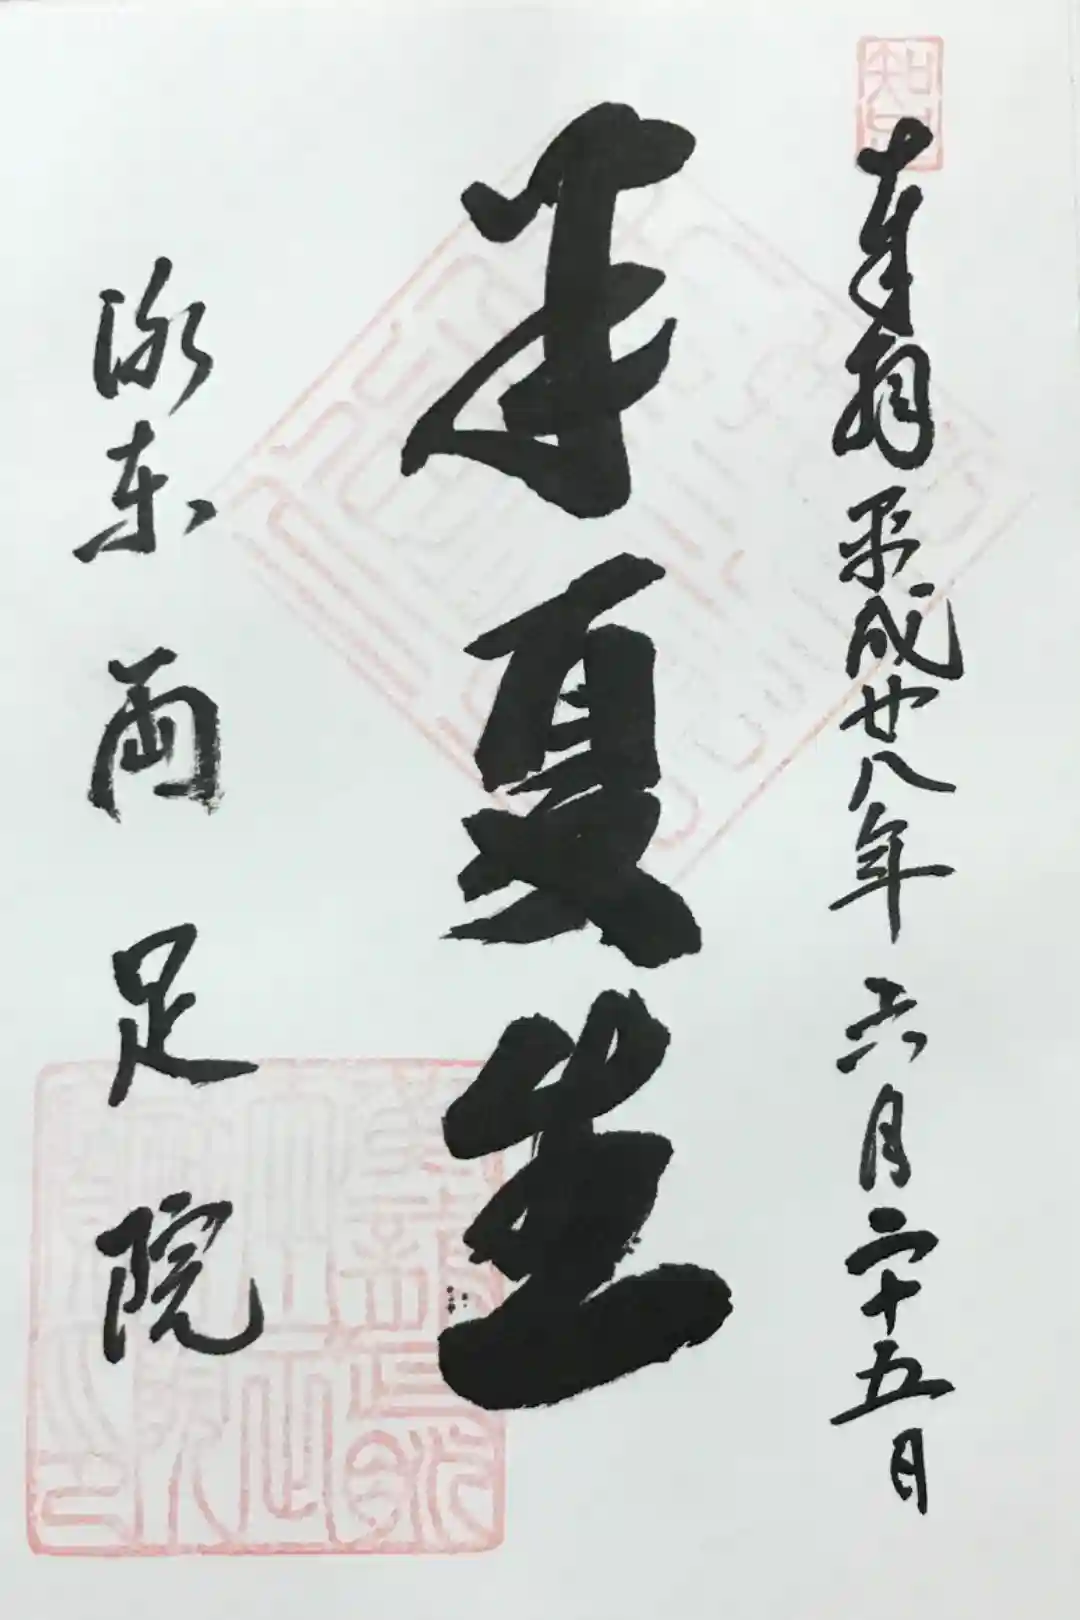 知足
奉拝 平成廿八年 六月二十五日
半夏生
洛東 両足院